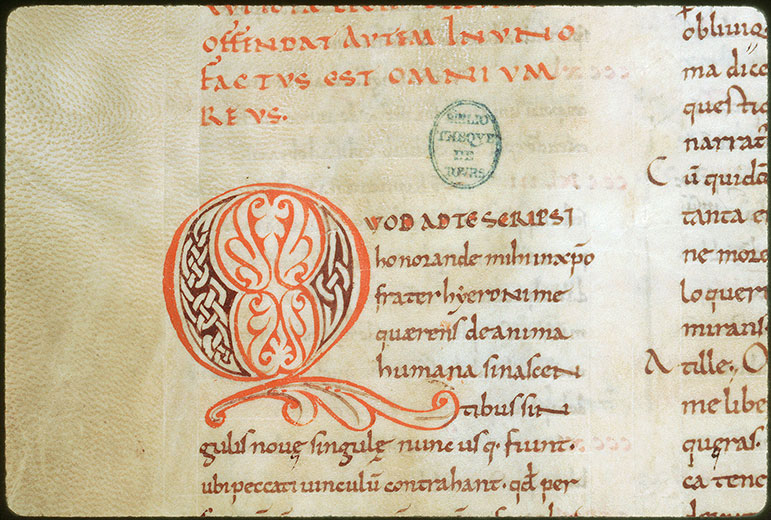 OFFENDAT AUTEM IN UNO
FACTUS EST OMNIUM
REUS.
BIBLIO
THEQUE
DE
QUOD AD TE SCRIPSI
honorande mihi in xp̄o
frater hyeronime
quærens de anima
humana si nascen
tibus sin
gulis nouę singulę nunc usq. fiunt.
ubi peccati uinculū contrahant. qd̄ per
obliuiq
ma dice
questio
narrat
Cū quidā
tanta e
ne more
lo quer
mirans
Atille. O
me libe
quęras.
ca tene